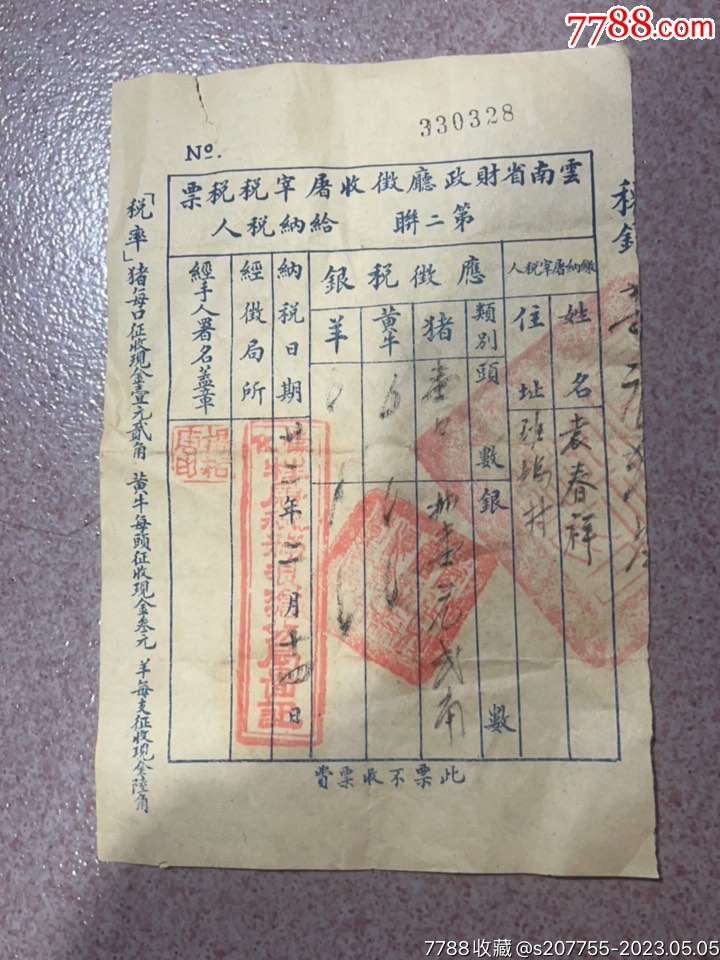 7788.com
No.
330328
雲南省財政廳徵收屠宰税税票
第二聯 給納税人
繳納屠宰税人
姓名
袁春祥
住址
應徵税銀
類別 頭數 銀數
猪
壹口
壹元貳角
黄牛
羊
納税日期
廿二年二月十四日
經徵局所
經手人署名蓋章
「税率」猪每口征收现金壹元贰角 黄牛每頭征收现金叁元 羊每支征收现金陸角
此票不收票費
税銀
7788收藏@s207755-2023.05.05